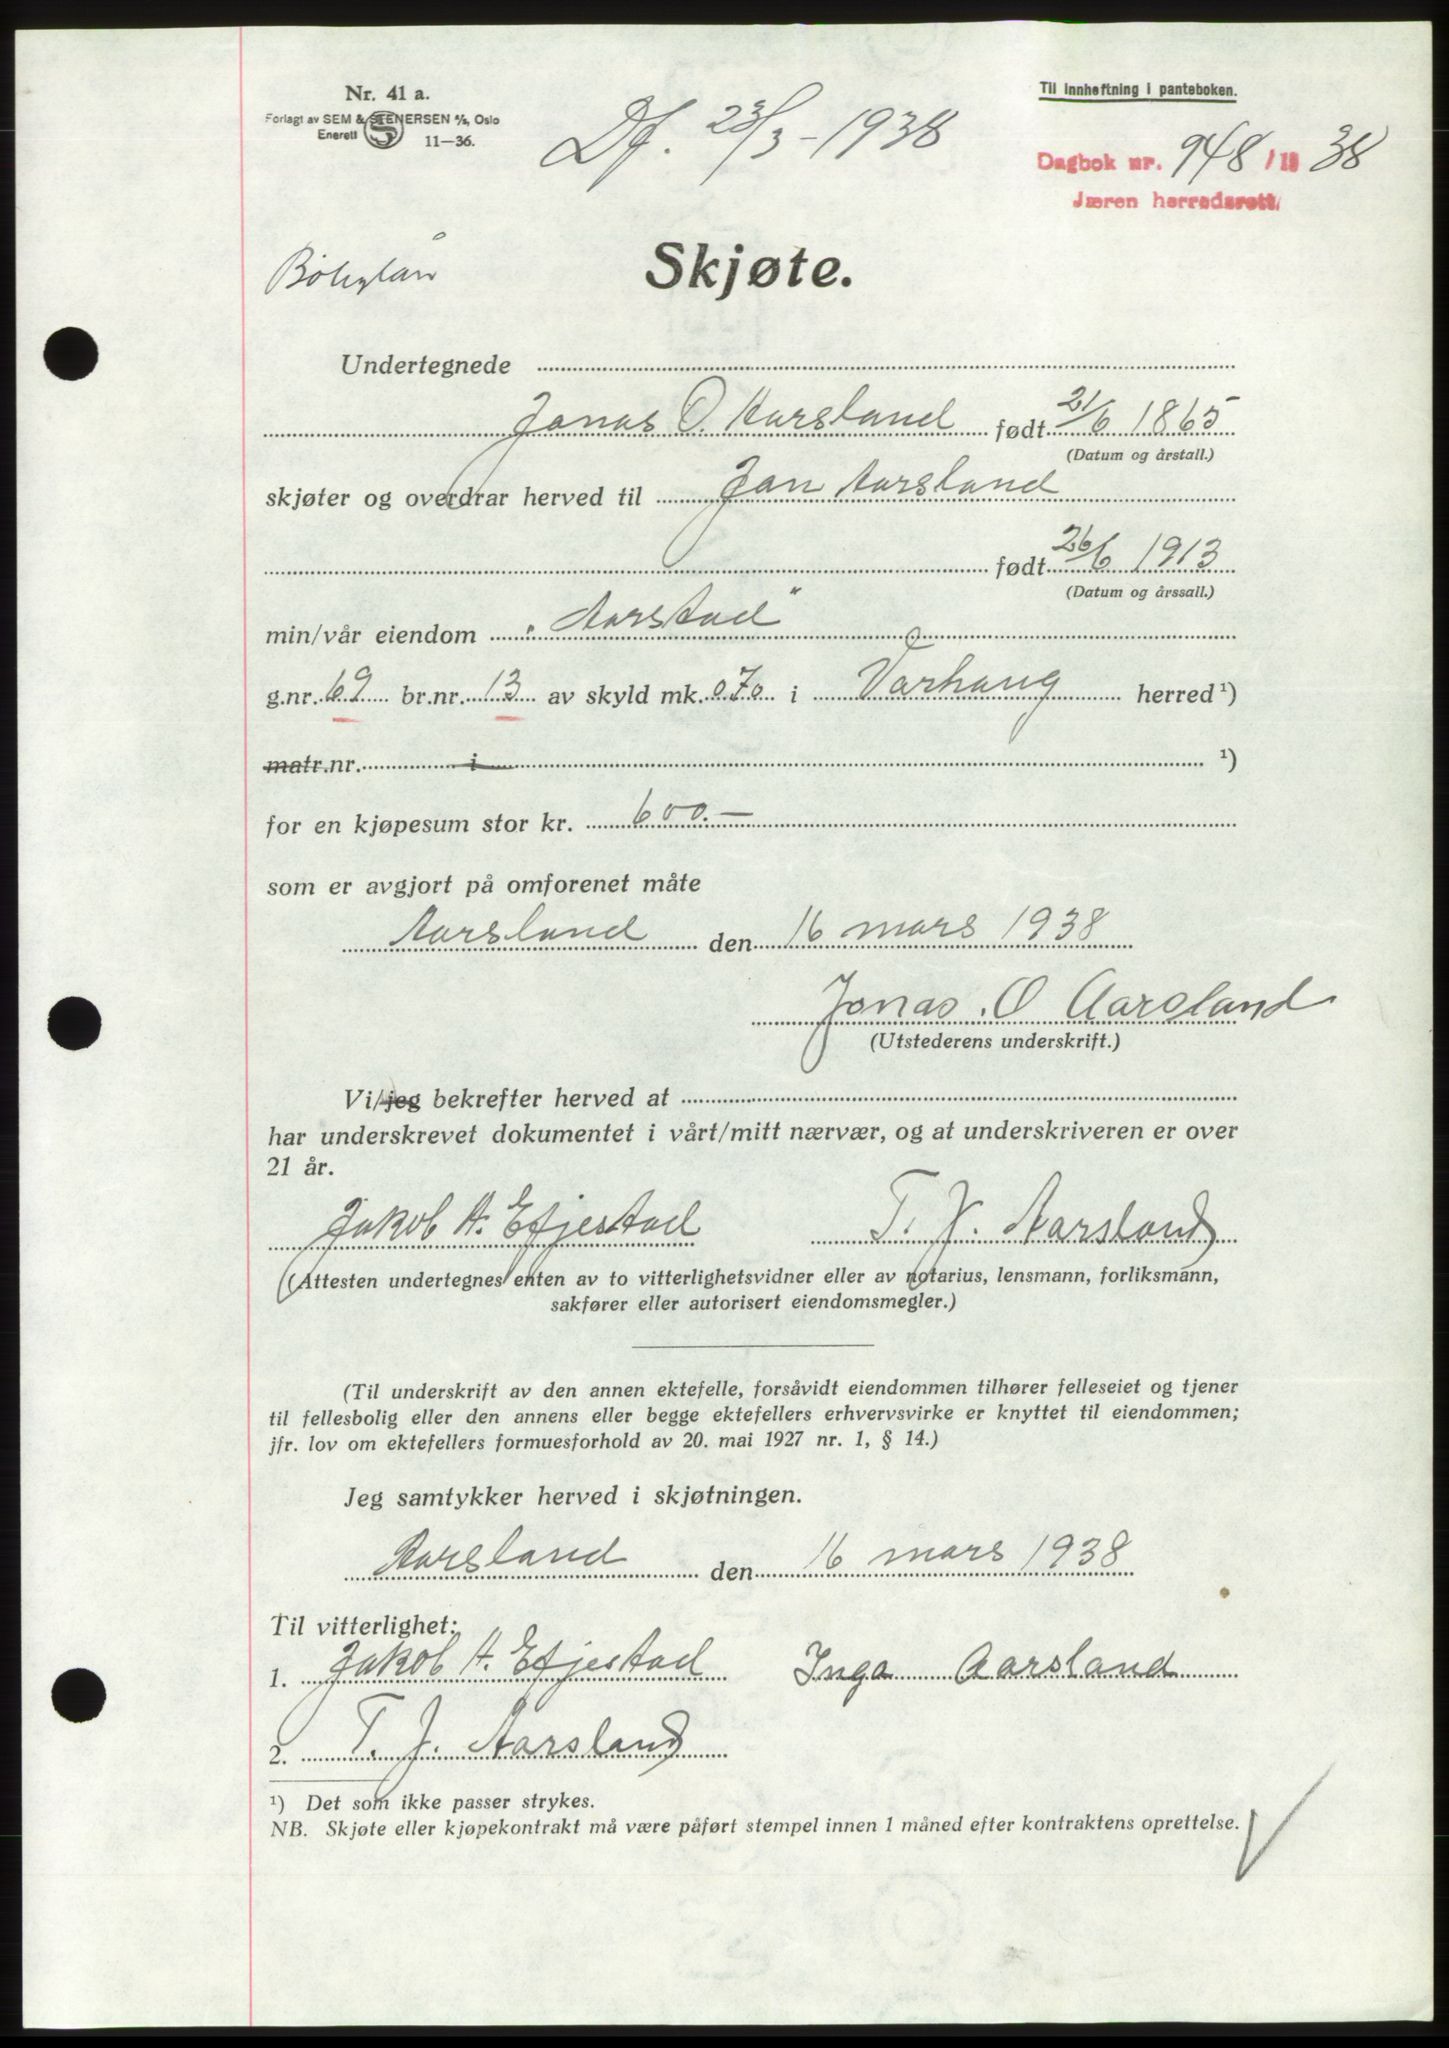 Nr. 41 a.
Forlagt av SEM & STENERSEN A/S, Oslo
Enerett
11-36.
Df. 23/3-1938
Til innheftning i panteboken.
Dagbok nr. 948/19 38
Jæren herredsrett
Skjøte.
Undertegnede
Jonas O. Aarsland født 21/6 1865
(Datum og årstall.)
skjøter og overdrar herved til Jan Aarsland
født 26/6 1913
(Datum og årssall.)
min/vår eiendom "Aarstad"
g.nr. 69 br.nr. 13 av skyld mk. 070 i Vårhaug herred ¹)
matr.nr. i ¹)
for en kjøpesum stor kr. 600.—
som er avgjort på omforenet måte
Aarsland den 16 mars 1938
Jonas. O Aarsland
(Utstederens underskrift.)
Vi/jeg bekrefter herved at
har underskrevet dokumentet i vårt/mitt nærvær, og at underskriveren er over
21 år.
Jakob A. Efjestad T. J. Aarsland
(Attesten undertegnes enten av to vitterlighetsvidner eller av notarius, lensmann, forliksmann,
sakfører eller autorisert eiendomsmegler.)
(Til underskrift av den annen ektefelle, forsåvidt eiendommen tilhører felleseiet og tjener
til fellesbolig eller den annens eller begge ektefellers erhvervsvirke er knyttet til eiendommen;
jfr. lov om ektefellers formuesforhold av 20. mai 1927 nr. 1, § 14.)
Jeg samtykker herved i skjøtningen.
Aarsland den 16 mars 1938
Til vitterlighet:
1. Jakob A. Efjestad Inga Aarsland
2. T. J. Aarsland
¹) Det som ikke passer strykes.
NB. Skjøte eller kjøpekontrakt må være påført stempel innen 1 måned efter kontraktens oprettelse.